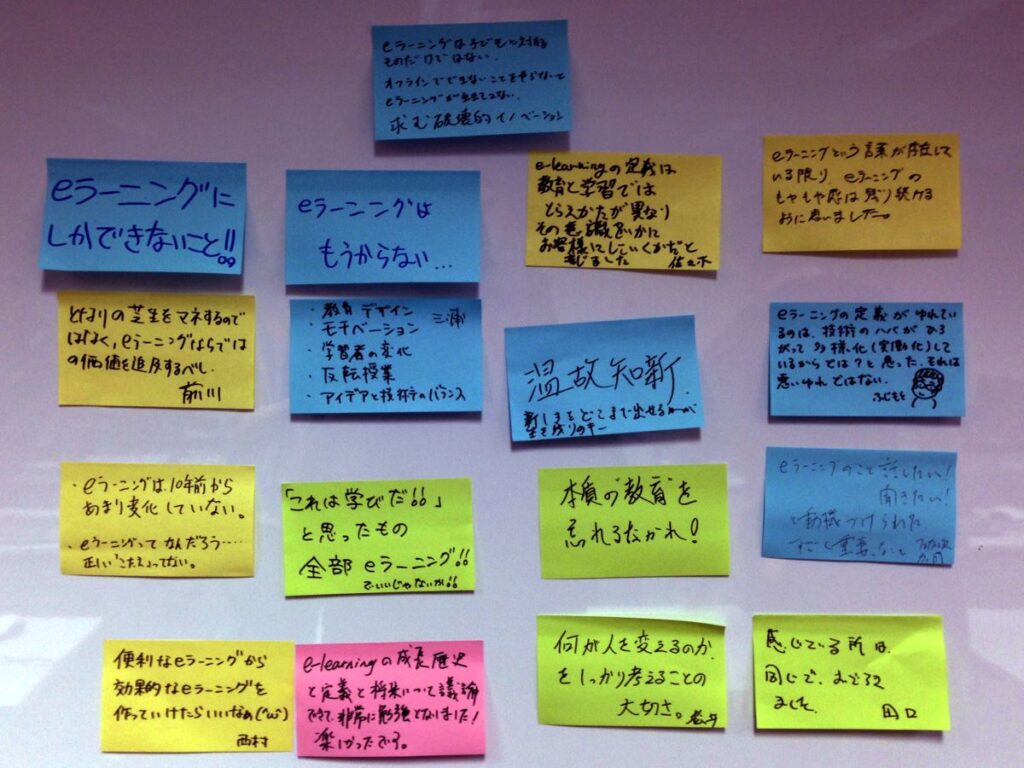 eラーニングは子どもに対する
ものだけではない.
オフラインでできないことをやらないと
eラーニングが
求む破壊的イノベーション
eラーニングに
しかできないこと!!
eラーニングは
もうからない…
e-learningの定義は
教育と学習では
とらえかたが異なり
その意識をいかに
お客様にしていくかだと
感じました
佐々木
eラーニングという言葉が存在して
いる限り、eラーニングの
もやもや感は残り続ける
ように思いました。
となりの芝生をマネするので
はなく、eラーニングならでは
の価値を追及するべし.
前川
・教育デザイン
三浦
・モチベーション
・学習者の変化
・反転授業
・アイデアと技術のバランス
温故知新.
新しさをどこまで出せるかが
生き残りのキー
eラーニングの定義がゆれている
のは、技術のハバがひろ
がって多様化(実働化)して
いるからでは?と思った.それは
悪いゆれではない.
ふじもと
・eラーニングは、10年前から
あまり変化していない。
・eラーニングってなんだろう……
正しい「こたえ」ってない。
「これは学びだ!!」
と思ったもの
全部eラーニング!!
でいいじゃないか!!
本質の教育を
忘れるなかれ!
eラーニングのこと話したい!
聞きたい!
と動機づけられた.
すごく重要なこと
便利なeラーニングから
効果的なeラーニングを
作っていけたらいいなぁ(^ω^)
西村
e-learningの成長歴史
と定義と将来について議論
できて、非常に勉強となりました!
楽しかったです。
何が人を変えるのか.
をしっかり考えることの
大切さ。
感じている所は.
同じで、おどろき
ました.
田口